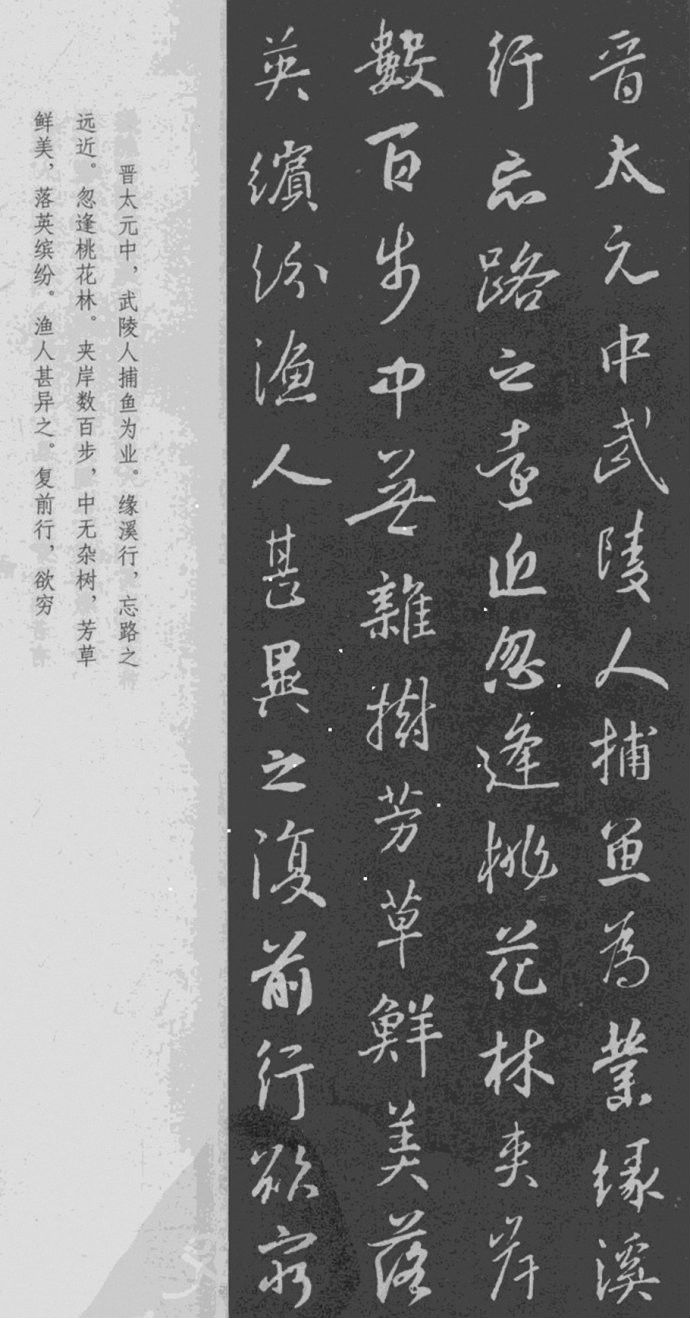 晋太元中武陵人捕鱼為業缘溪
行忘路之遠近忽逢桃花林夾岸
數百步中無雜樹芳草鮮美落
英繽紛漁人甚異之復前行欲窮
晋太元中，武陵人捕鱼为业。缘溪行，忘路之
远近。忽逢桃花林。夹岸数百步，中无杂树，芳草
鲜美，落英缤纷。渔人甚异之。复前行，欲穷